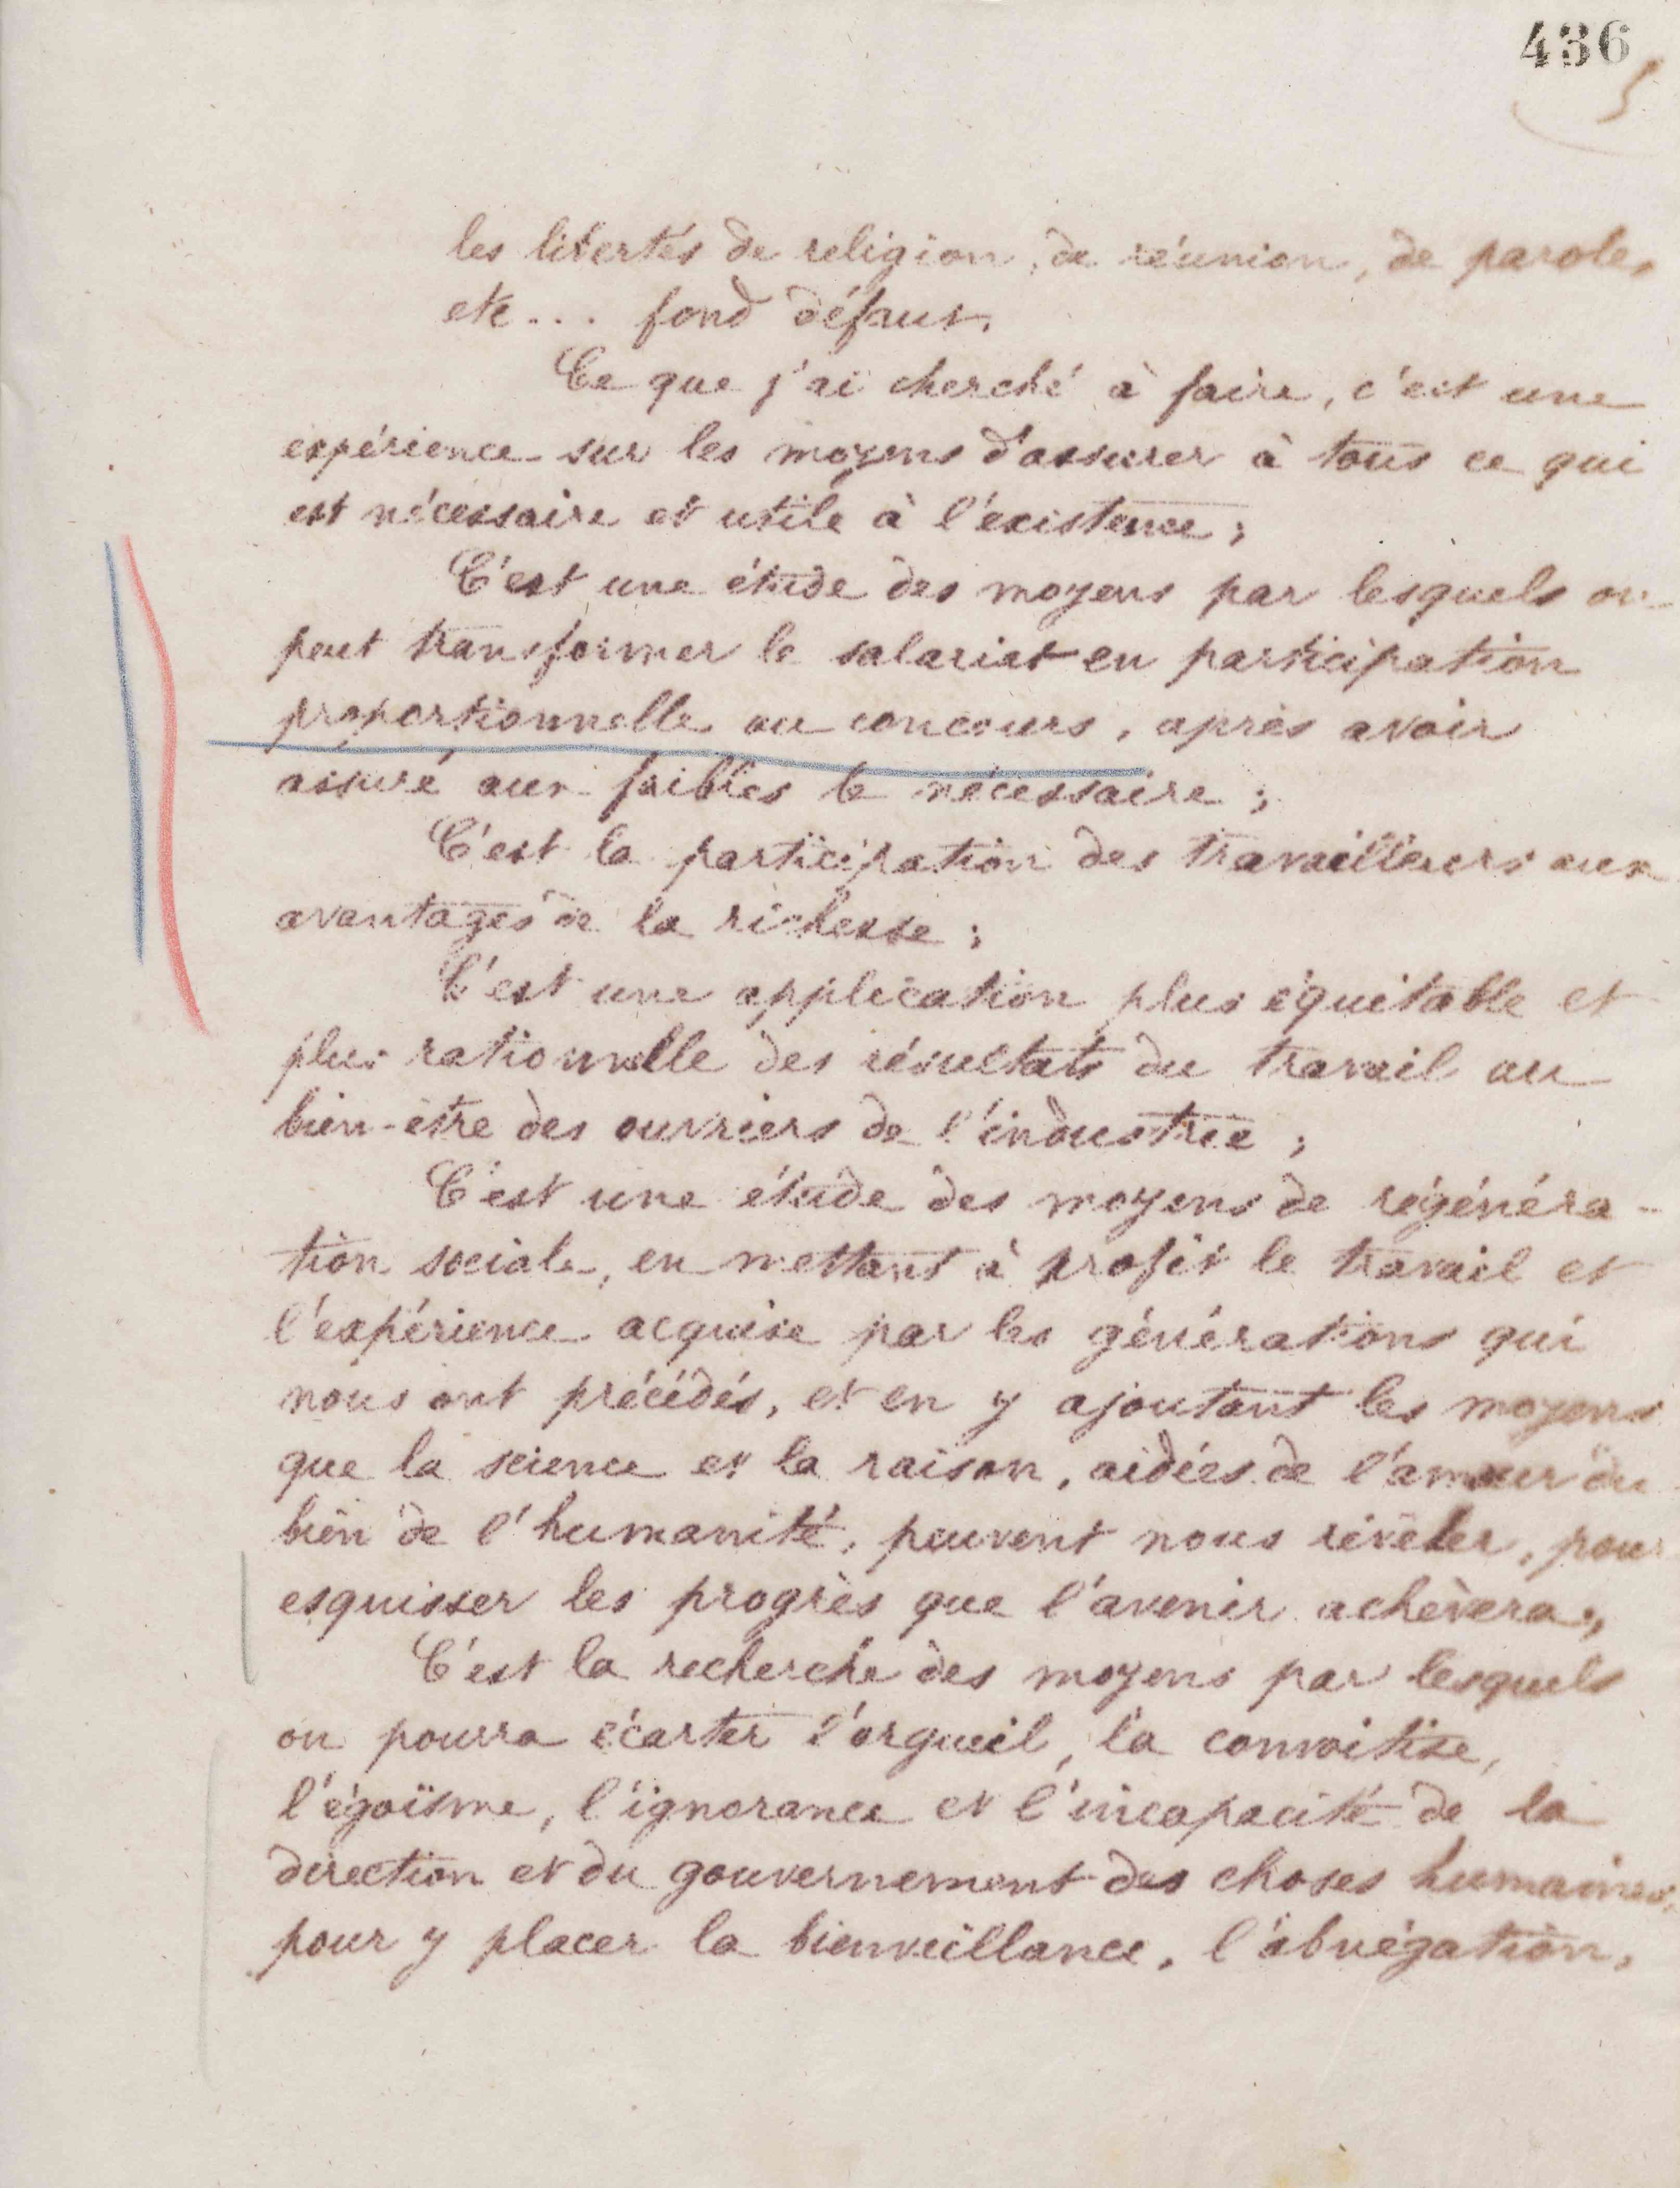 436
5
les libertés de religion, de réunion, de parole,
etc... fond défaut.
Ce que j'ai cherché à faire, c'est une
expérience sur les moyens d'assurer à tous ce qui
est nécessaire et utile à l'existence;
C'est une étude des moyens par lesquels on
peut transformer le salariat en participation
proportionnelle au concours, après avoir
assuré aux faibles le nécessaire;
C'est la participation des travailleurs aux
avantages de la richesse;
C'est une application plus équitable et
plus rationnelle des résultats du travail au
bien-être des ouvriers de l'industrie;
C'est une étude des moyens de régénéra-
tion sociale, en mettant à profit le travail et
l'expérience acquise par les générations qui
nous ont précédés, et en y ajoutant les moyens
que la science et la raison, aidées de l'amour du
bien de l'humanité, peuvent nous révéler, pour
esquisser les progrès que l'avenir achèvera;
C'est la recherche des moyens par lesquels
on pourra écarter l'orgueil, la convoitise,
l'égoïsme, l'ignorance et l'incapacité de la
direction et du gouvernement des choses humaines,
pour y placer la bienveillance, l'abnégation,